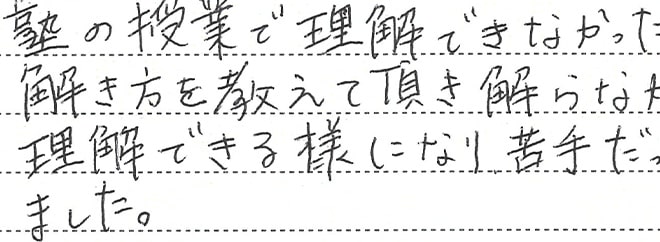 塾の授業で理解できなかった
解き方を教えて頂き解らな
理解できる様になり苦手だっ
ました。